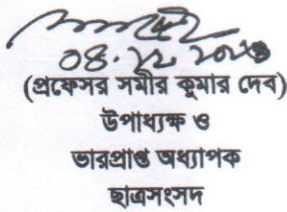 ০৪.১২.২০২৩
(প্রফেসর সমীর কুমার দেব)
উপাধ্যক্ষ ও
ভারপ্রাপ্ত অধ্যাপক
ছাত্রসংসদ